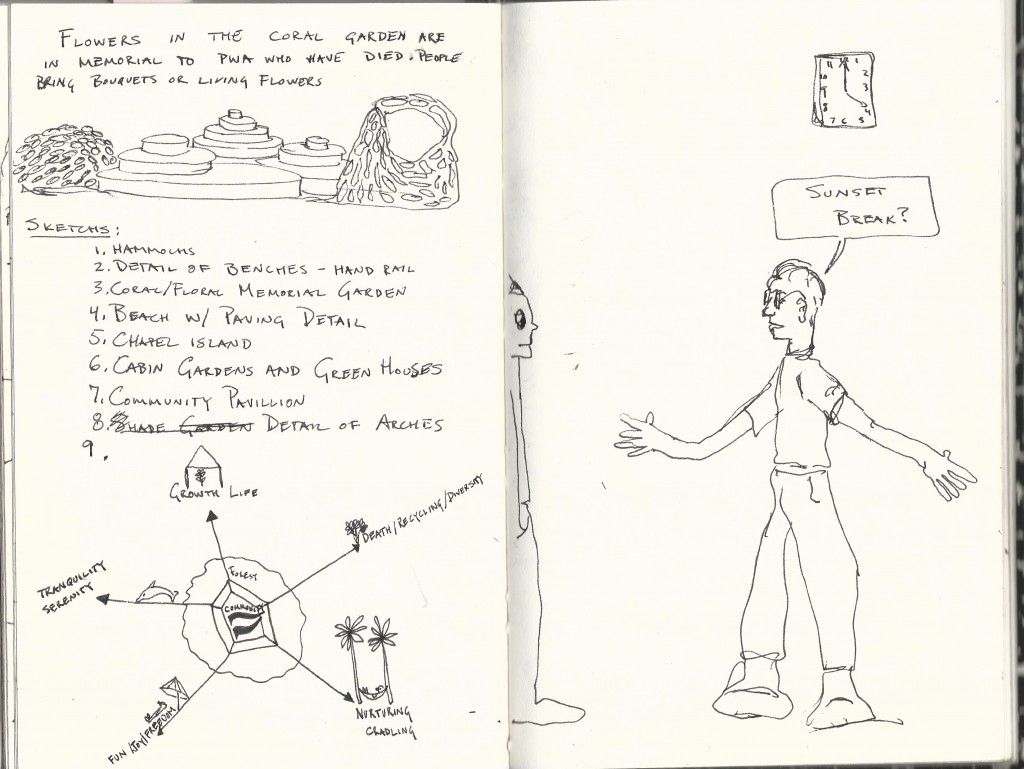 FLOWERS IN THE CORAL GARDEN ARE
IN MEMORIAL TO PWA WHO HAVE DIED. PEOPLE
BRING BOUQUETS OR LIVING FLOWERS
SKETCHS:
1. HAMMOCKS
2. DETAIL OF BENCHES - HAND RAIL
3. CORAL/FLORAL MEMORIAL GARDEN
4. BEACH W/ PAVING DETAIL
5. CHAPEL ISLAND
6. CABIN GARDENS AND GREEN HOUSES
7. COMMUNITY PAVILLION
8. SHADE GARDEN DETAIL OF ARCHES
9.
GROWTH LIFE
DEATH/RECYCLING/DIVERSITY
TRANQUILITY
SERENITY
FOREST
COMMUNITY
NURTURING
CRADLING
FUN/JOY/FREEDOM
11 12 1
10 2
9 3
8 4
7 6 5
SUNSET
BREAK?